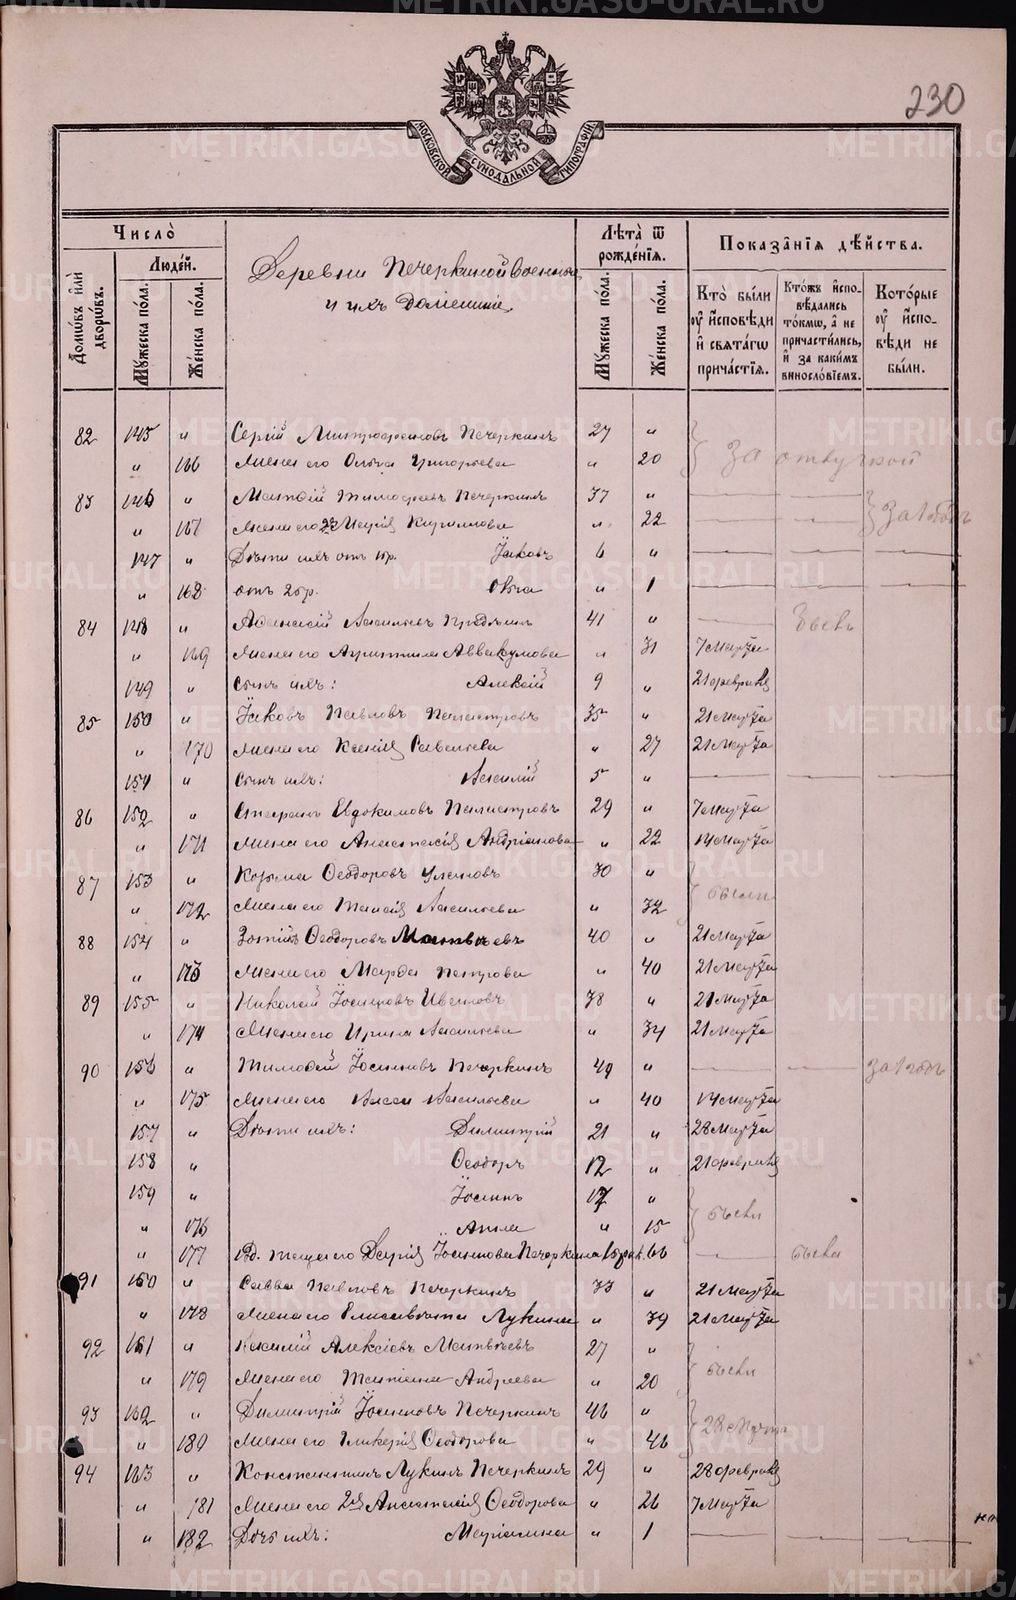 230
МОСКОВСКОЙ СѴНОДАЛЬНОЙ ТИПОГРАФІИ.
Число̀
Люде́й.
Домѡ́въ и҆лѝ дворѡ́въ.
Мꙋ́жеска по́ла.
Же́нска по́ла.
Деревни Печеркиной Военные
и ихъ домашние
Лѣ̑та ѿ рожде́нїѧ.
Мꙋ́жеска по́ла.
Же́нска по́ла.
Показа̑нїѧ дѣ́йства.
Кто̀ бы́ли ᲂу҆ и҆сповѣ́ди и҆ свѧта́гѡ прича́стїѧ.
Кто́жъ и҆споⷡ҇ѣ́дались то́кмѡ, а҆ не причасти́лись, и҆ за каки́мъ винослѡ́вїемъ.
Кото́рые ᲂу҆ и҆сповѣ́ди не бы́ли.
82 145 " Сергій Митрофановъ Печеркинъ 27 "
" 166 Жена его Ольга Григорьева " 20 За отлучкой
83 146 " Матѳій Тимофеевъ Печеркинъ 37 "
" 167 Жена его 2я Марія Кириллова " 22 За 1 годъ
147 " Дѣти ихъ отъ 1 бр. Іаковъ 6 "
" 168 отъ 2 бр. Ольга " 1
84 148 " Аѳанасій Васильевъ 41 "
" 169 Жена его Аввакумова " 31 7 Марта
149 " Сынъ ихъ: Алексій 9 " 21 февраля
85 150 " Іаковъ Павловъ Палистровъ 35 " 21 Марта
" 170 Жена его Ксенія Савельева " 27 21 Марта
151 " Сынъ ихъ: Василій 5 "
86 152 " Стефанъ Евдокимовъ Палистровъ 29 " 7 Марта
" 171 Жена его Анастасія Андріанова " 22 14 Марта
87 153 " Козьма Ѳеодоровъ Улановъ 30 "
" 172 Жена его Таисія Васильева " 32
88 154 " Зотикъ Ѳеодоровъ Матвѣевъ 40 " 21 Марта
" 173 Жена его Марѳа Петрова " 40 21 Марта
89 155 " Николай Іосифовъ Ивановъ 38 " 21 Марта
" 174 Жена его Ирина Васильева " 34 21 Марта
90 156 " Тимоѳей Іосиповъ Печеркинъ 49 " За 1 годъ
" 175 Жена его Васса Васильева " 40 14 Марта
157 " Дѣти ихъ: Димитрій 21 " 28 Марта
158 " Ѳеодоръ 12 " 21 февраля
159 " Іосипъ 17 "
" 176 Анна " 15
" 177 Вд. теща его Дарія Іосипова Печеркина 1 брак. 66
91 160 " Савва Павловъ Печеркинъ 33 " 21 Марта
" 178 Жена его Елисавета Лукина " 39 21 Марта
92 161 " Василій Алексіевъ Матвѣевъ 27 "
" 179 Жена его Татіана Андреева " 20
93 162 " Димитрій Іосиповъ Печеркинъ 46 "
" 180 Жена его Гликерія Ѳеодорова " 46 28 Марта
94 163 " Константинъ Лукинъ Печеркинъ 29 " 28 февраля
" 181 Жена его 2я Анастасія Ѳеодорова " 26 7 Марта
" 182 Дочь ихъ: Маріанна " 1
METRIKI.GASO-URAL.RU